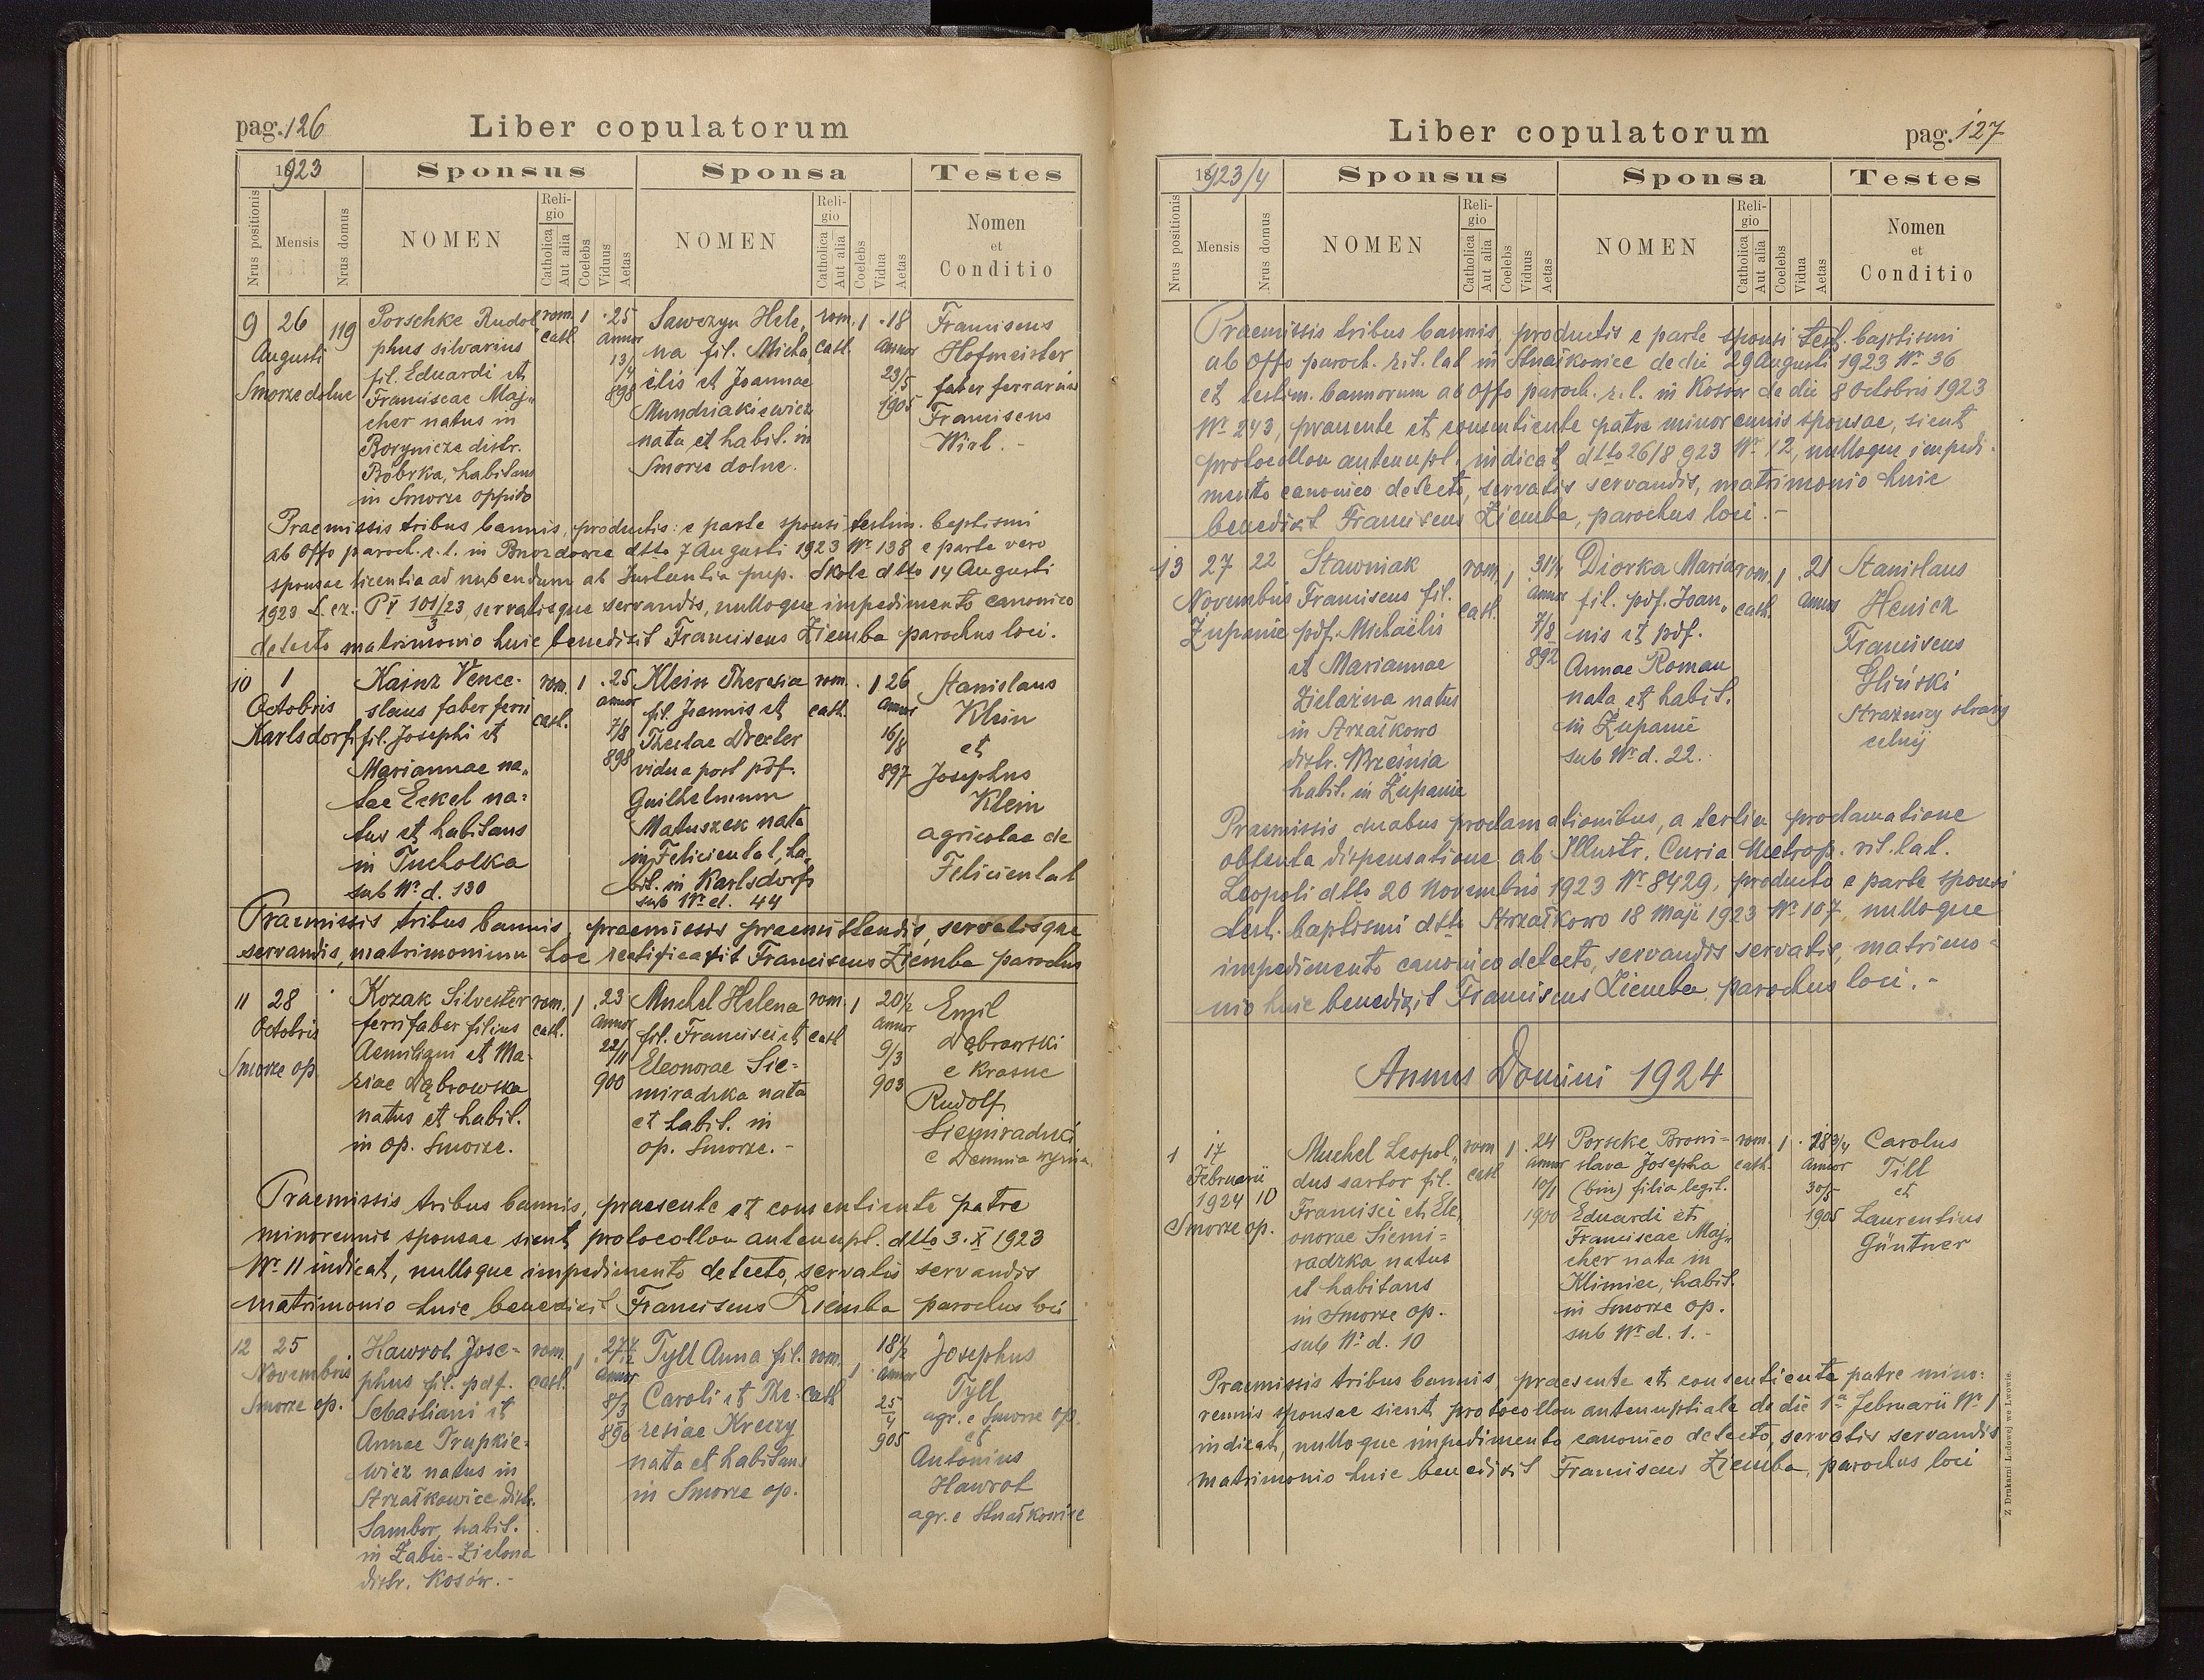 pag. 126
Liber copulatorum
1923
Sponsus
Sponsa
Testes
Nrus positionis
Mensis
Nrus domus
NOMEN
Religio
Catholica
Aut alia
Coelebs
Viduus
Aetas
NOMEN
Religio
Catholica
Aut alia
Coelebs
Vidua
Aetas
Nomen
et
Conditio
9 26 119
Augusti
Smorze dolne
Porschke Rudol
phus silvarius
fil. Eduardi et
Franciscae Maj„
cher natus in
Borynicze distr.
Bobrka, habitans
in Smorze oppido
rom. 1 25
cath. annor
13/4
898
Sawczyn Hele„
na fil. Micha
ëlis et Joannae
Mundziakiewicz
nata et habit. in
Smorze dolne.
rom. 1 18
cath. annor
23/5
1905
Franciscus
Hofmeister
faber ferrarius
Franciscus
Wirl. -
Praemissis tribus bannis, productis: e parte sponsi testim. baptismi
ab offo paroch. r. l. in Brzozdowce dtto 7 Augusti 1923 Nr 138 e parte vero
sponsae licentia ad nubendum ab Instantia pup. Skole dtto 14 Augusti
1923 L. cz. P V 101/23/3, servatisque servandis, nulloque impedimento canonico
detecto matrimonio huic benedixit Franciscus Ziemba parochus loci.
10 1
Octobris
Karlsdorf
Kainz Vence-
slaus faber ferri
fil. Josephi et
Mariannae na„
tae Eckel na-
tus et habitans
in Tucholka
sub Nr d. 130
rom. 1 25
cath. annor
7/8
898
Klein Theresia
fil. Joannis et
Theclae Drexler
vidua post pdf.
Guilhelmum
Matuszek nata
in Felicienthal, ha„
bit. in Karlsdorf
sub Nr d. 44
rom. 1 26
cath. annor
16/8
897
Stanislaus
Klein
et
Josephus
Klein
agricolae de
Felicienthal
Praemissis tribus bannis, praemissis praemittendis, servatisque
servandis, matrimonium hoc rectificavit Franciscus Ziemba parochus
11 28
Octobris
Smorze op.
Kozak Silvester
ferrifaber filius
Aemiliani et Ma-
riae Dąbrowska
natus et habit.
in op. Smorze.
rom. 1 23
cath. annor
22/11
900
Muchel Helena
fil. Francisci et
Eleonorae Sie-
miradzka nata
et habit. in
op. Smorze. -
rom. 1 20 1/2
cath annor
9/3
903
Emil
Dąbrowski
e Krasne
Rudolf
Siemiradzki
e Demnia wyżna
Praemissis tribus bannis, praesente et consentiente patre
minorennis sponsae sicut protocollon antenupt. dtto 3. X 1923
Nr 11 indicat, nulloque impedimento detecto, servatis servandis
matrimonio huic benedixit Franciscus Ziemba parochus loci
12 25
Novembris
Smorze op.
Hawrot Jose-
phus fil. pdf.
Sebastiani et
Annae Trupkie-
wicz natus in
Strzałkowice distr.
Sambor, habit.
in Żabie-Zielona
distr. Kosów. -
rom. 1
cath. annor
8/3
896
Tyll Anna fil.
Caroli et The-
resiae Kreczy
nata et habitans
in Smorze op.
rom. 1 18 1/2
cath annor
25/4
905
Josephus
Tyll
agr. e Smorze op.
et
Antonius
Hawrot
agr. e Strzałkowice
Liber copulatorum
pag. 127
1923/4
Sponsus
Sponsa
Testes
Nrus positionis
Mensis
Nrus domus
NOMEN
Religio
Catholica
Aut alia
Coelebs
Viduus
Aetas
NOMEN
Religio
Catholica
Aut alia
Coelebs
Vidua
Aetas
Nomen
et
Conditio
Praemissis tribus bannis, productis e parte sponsi test. baptismi
ab offo paroch. rit. lat. in Strzałkowice de die 29 Augusti 1923 Nr 36
et testim. bannorum ab offo paroch. r. l. in Kosów de die 8 Octobris 1923
Nr 243, praesente et consentiente patre minorennis sponsae, sicut
protocollon antenupt. indicat dtto 26/8 923 Nr 12, nulloque impedi-
mento canonico detecto, servatis servandis, matrimonio huic
benedixit Franciscus Ziemba, parochus loci. -
13 27 22
Novembris
Żupanie
Stawniak
Franciscus fil.
pdf. Michaëlis
et Mariannae
Zielazna natus
in Strzałkowo
distr. Września
habit. in Żupanie
rom. 1 31 1/4
cath. annor
7/8
892
Diorka Maria
fil. pdf. Joan„
nis et pdf.
Annae Roman
nata et habit.
in Żupanie
sub Nr d. 22.
rom. 1 21
cath. annor
Stanislaus
Henich
Franciscus
Gliński
Strażnicy straży
celnej
Praemissis duabus proclamationibus, a tertia proclamatione
obtenta dispensatione ab Illustr. Curia Metrop. rit. lat.
Leopoli dtto 20 Novembris 1923 Nr 8429, producto e parte sponsi
test. baptismi dtto Strzałkowo 18 Maji 1923 Nr 107, nulloque
impedimento canonico detecto, servandis servatis, matrimo-
nio huic benedixit Franciscus Ziemba, parochus loci. -
Annus Domini 1924
1 17
Februarii
1924 10
Smorze op.
Muchel Leopol„
dus sartor fil.
Francisci et Ele„
onorae Siemi-
radzka natus
et habitans
in Smorze op.
sub Nr d. 10
rom 1 24
cath annor
10/1
1900
Porscke Broni-
slava Josepha
(bin) filia legit.
Eduardi et
Franciscae Maj„
cher nata in
Klimiec, habit.
in Smorze op.
sub Nr d. 1. -
rom. 1 18 3/4
cath. annor
30/5
1905
Carolus
Till
et
Laurentius
Güntner
Praemissis tribus bannis, praesente et consentiente patre mino-
rennis sponsae sicut protocollon antenuptiale de die 1a Februarii Nr 1
indicat, nulloque impedimento canonico detecto, servatis servandis
matrimonio huic benedixit Franciscus Ziemba, parochus loci
Z Drukarni Ludowej we Lwowie.